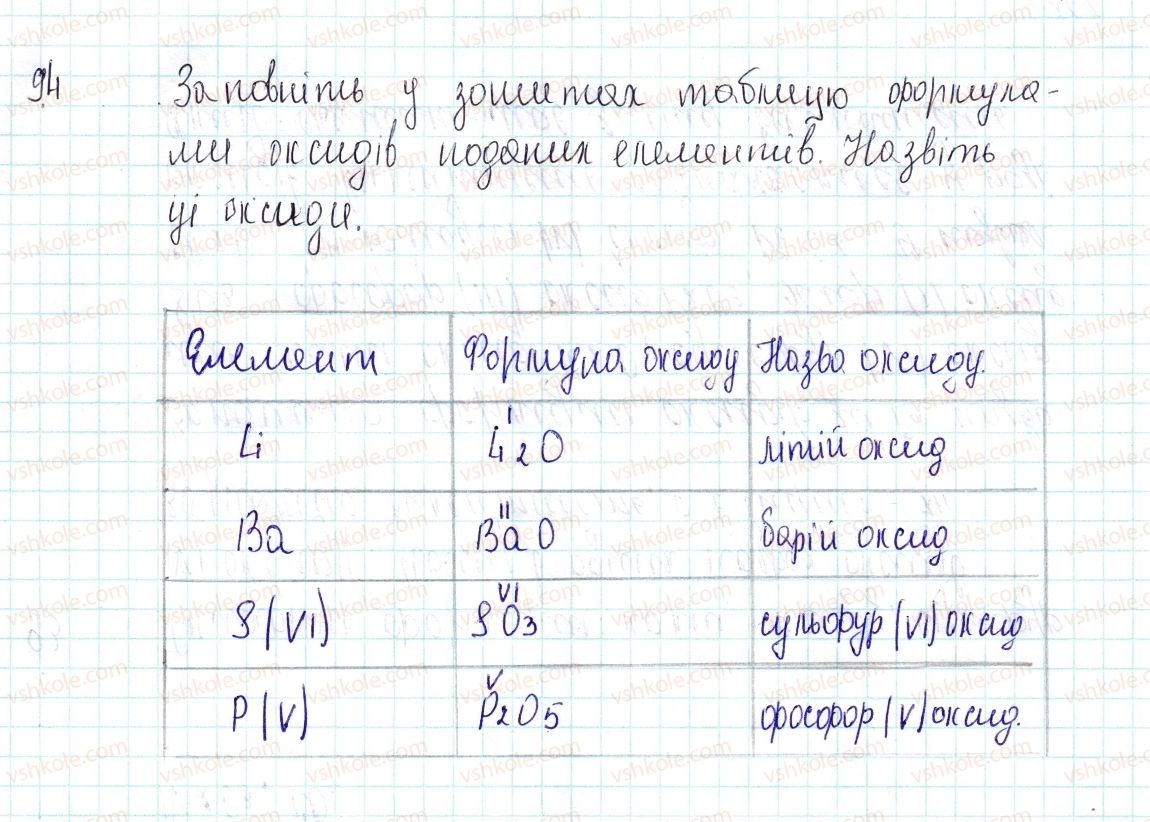 94 Заповніть у зошитах таблицю формула-
ми оксидів поданих елементів. Назвіть
ці оксиди.
Елемент Формула оксиду Назва оксиду.
I
Li Li2O літій оксид
II
Ba BaO барій оксид
VI
S (VI) SO3 сульфур (VI) оксид
V
P (V) P2O5 фосфор (V) оксид.
vshkole.com